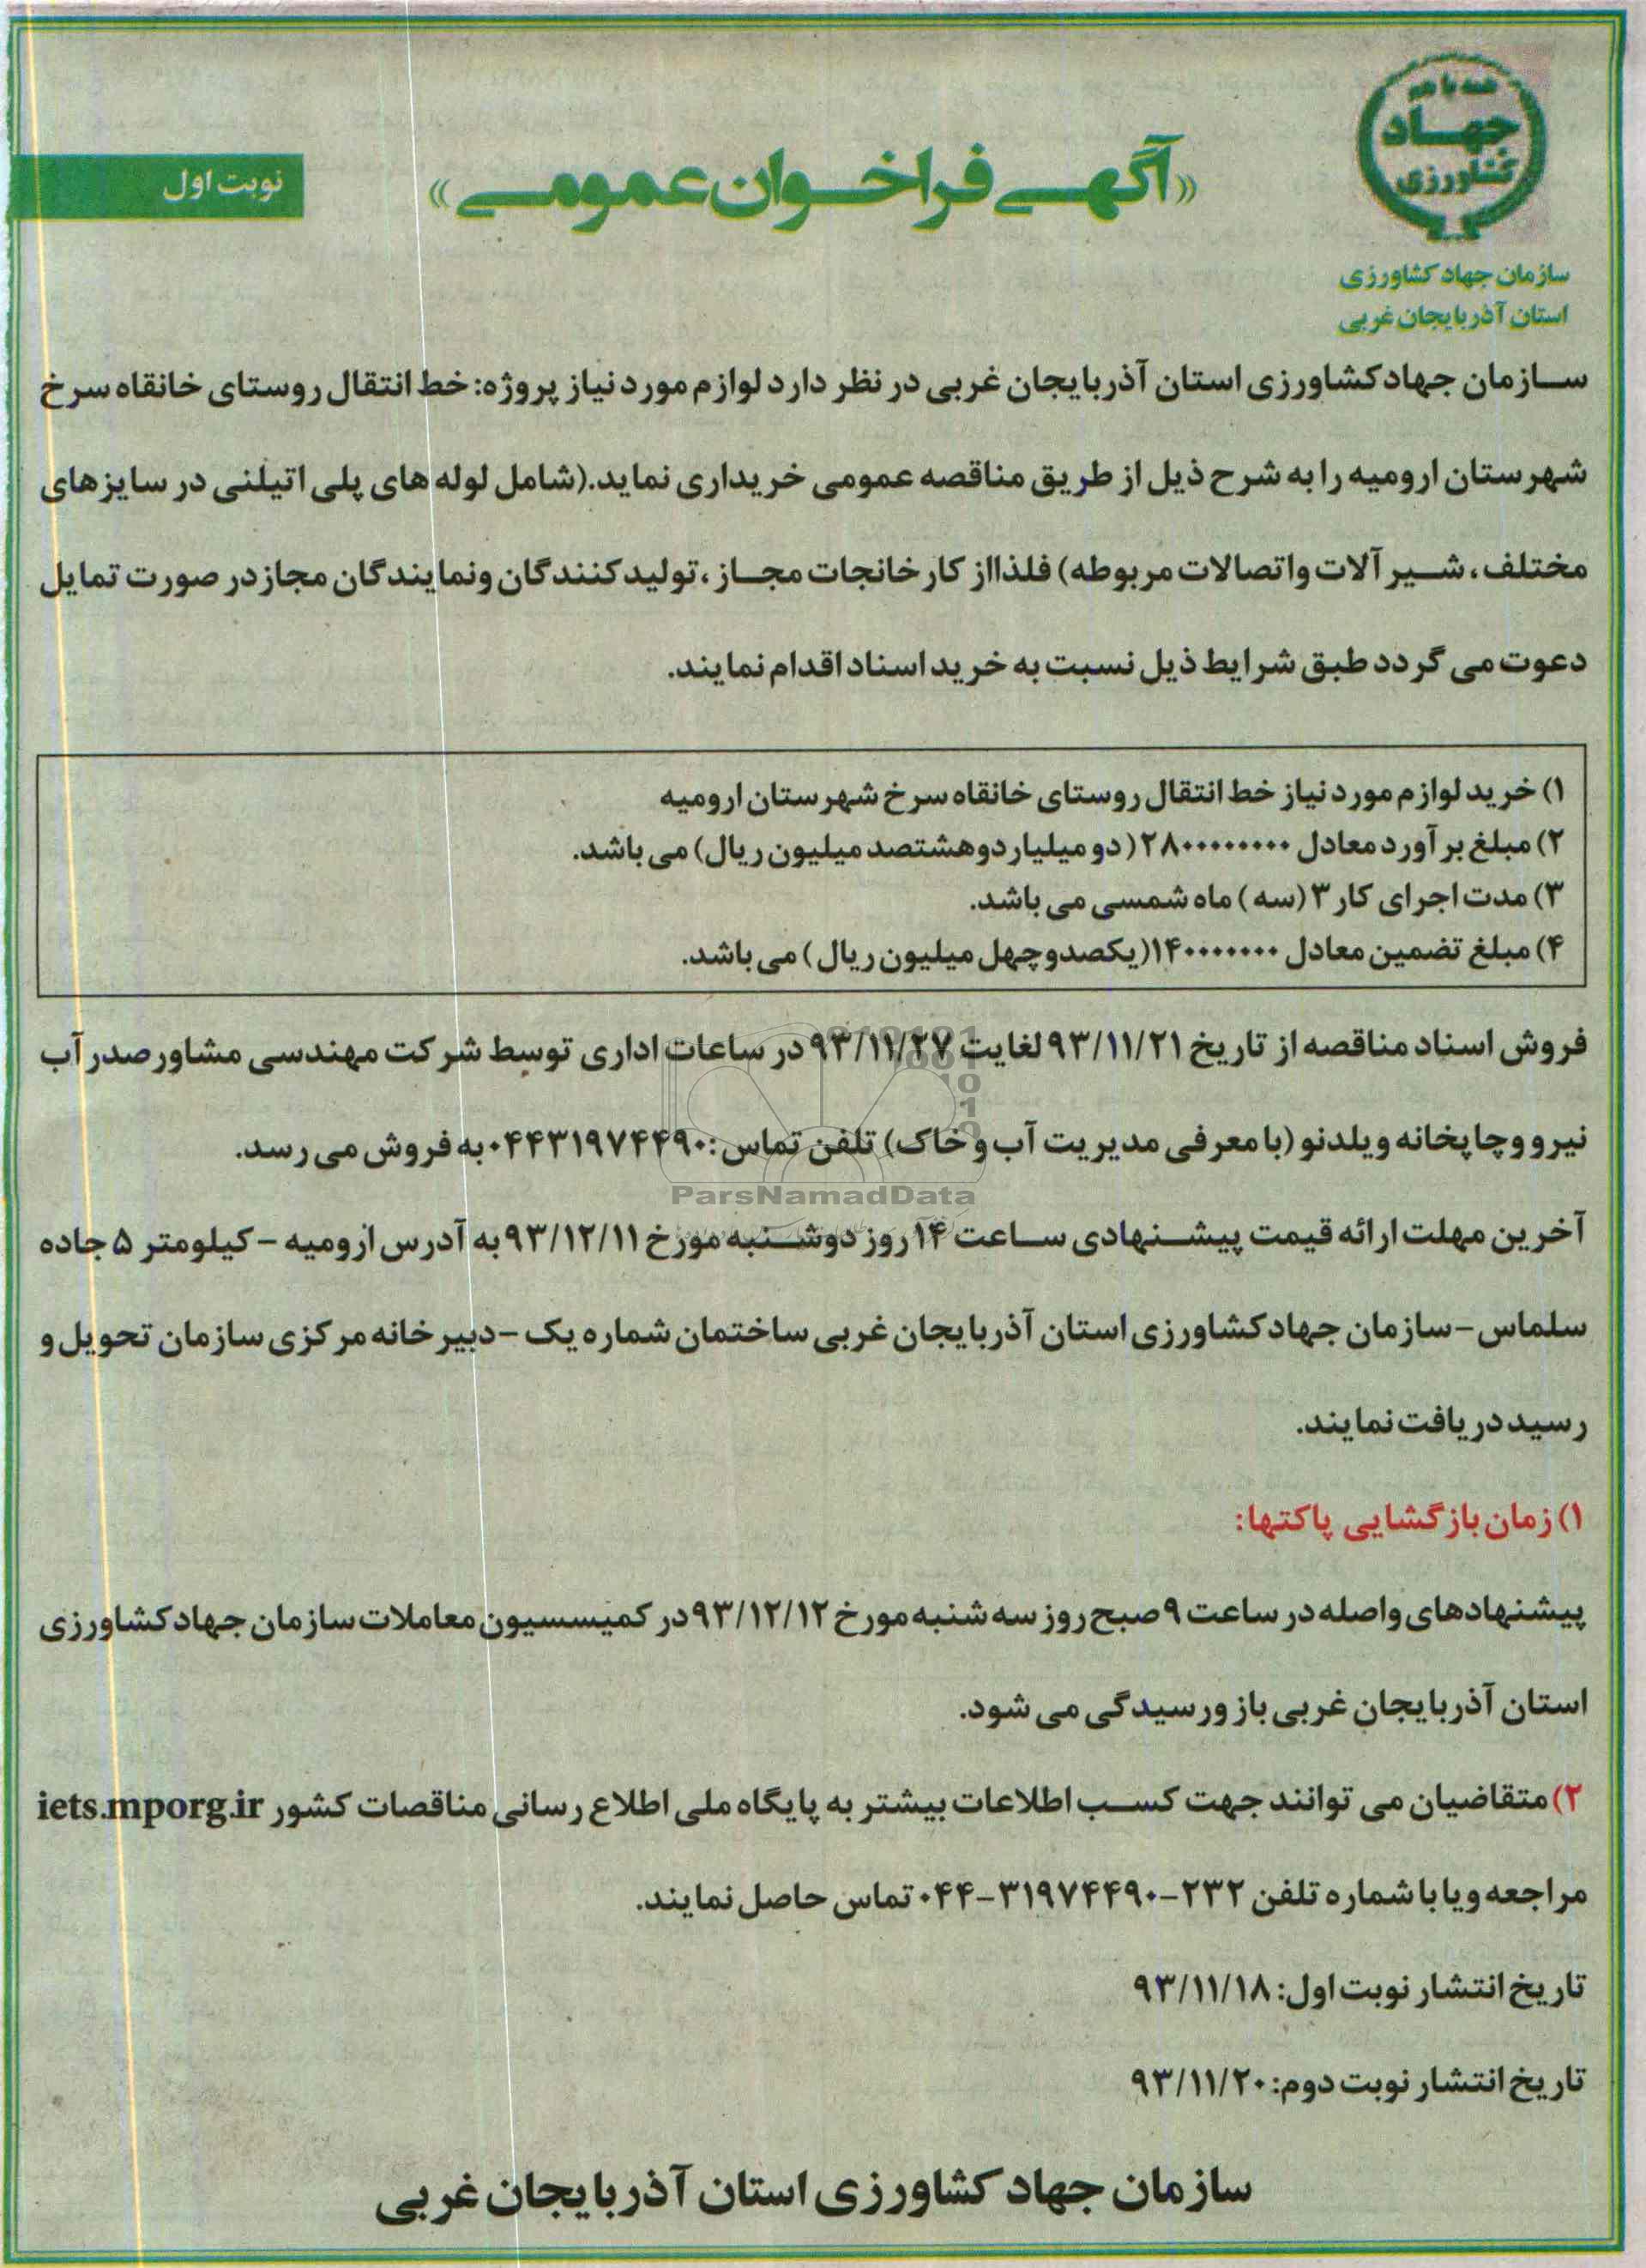 همه با هم
جهاد
کشاورزی
«آگهی فراخوان عمومی»
نوبت اول
سازمان جهاد کشاورزی
استان آذربایجان غربی
سازمان جهادکشاورزی استان آذربایجان غربی در نظر دارد لوازم مورد نیاز پروژه: خط انتقال روستای خانقاه سرخ
شهرستان ارومیه را به شرح ذیل از طریق مناقصه عمومی خریداری نماید.(شامل لوله های پلی اتیلنی در سایزهای
مختلف، شیر آلات و اتصالات مربوطه) فلذا از کارخانجات مجاز، تولید کنندگان ونمایندگان مجاز در صورت تمایل
دعوت می گردد طبق شرایط ذیل نسبت به خرید اسناد اقدام نمایند.
۱) خرید لوازم مورد نیاز خط انتقال روستای خانقاه سرخ شهرستان ارومیه
۲) مبلغ بر آورد معادل ۲۸۰۰۰۰۰۰۰۰۰ (دو میلیارد و هشتصد میلیون ریال) می باشد.
۳) مدت اجرای کار ۳ (سه) ماه شمسی می باشد.
۴) مبلغ تضمین معادل ۱۴۰۰۰۰۰۰۰ (یکصدو چهل میلیون ریال) می باشد.
فروش اسناد مناقصه از تاریخ ۹۳/۱۱/۲۱ لغایت ۹۳/۱۱/۲۷ در ساعات اداری توسط شرکت مهندسی مشاور صدر آب
نیرو و چاپخانه ویلدنو (با معرفی مدیریت آب و خاک) تلفن تماس: ۰۴۴۳۱۹۷۴۴۹۰ به فروش می رسد.
ParsNamadData
آخرین مهلت ارائه قیمت پیشنهادی ساعت ۱۴ روز دوشنبه مورخ ۹۳/۱۲/۱۱ به آدرس ارومیه – کیلومتر ۵ جاده
سلماس- سازمان جهادکشاورزی استان آذربایجان غربی ساختمان شماره یک – دبیرخانه مرکزی سازمان تحویل و
رسید دریافت نمایند.
۱) زمان بازگشایی پاکتها:
پیشنهادهای واصله در ساعت ۹ صبح روز سه شنبه مورخ ۹۳/۱۲/۱۲ در کمیسسیون معاملات سازمان جهاد کشاورزی
استان آذربایجان غربی باز و رسیدگی می شود.
۲) متقاضیان می توانند جهت کسب اطلاعات بیشتر به پایگاه ملی اطلاع رسانی مناقصات کشور iets.mporg.ir
مراجعه ویا با شماره تلفن ۲۳۲-۳۱۹۷۴۴۹۰-۰۴۴ تماس حاصل نمایند.
تاریخ انتشار نوبت اول: ۹۳/۱۱/۱۸
تاریخ انتشار نوبت دوم: ۹۳/۱۱/۲۰
سازمان جهاد کشاورزی استان آذربایجان غربی